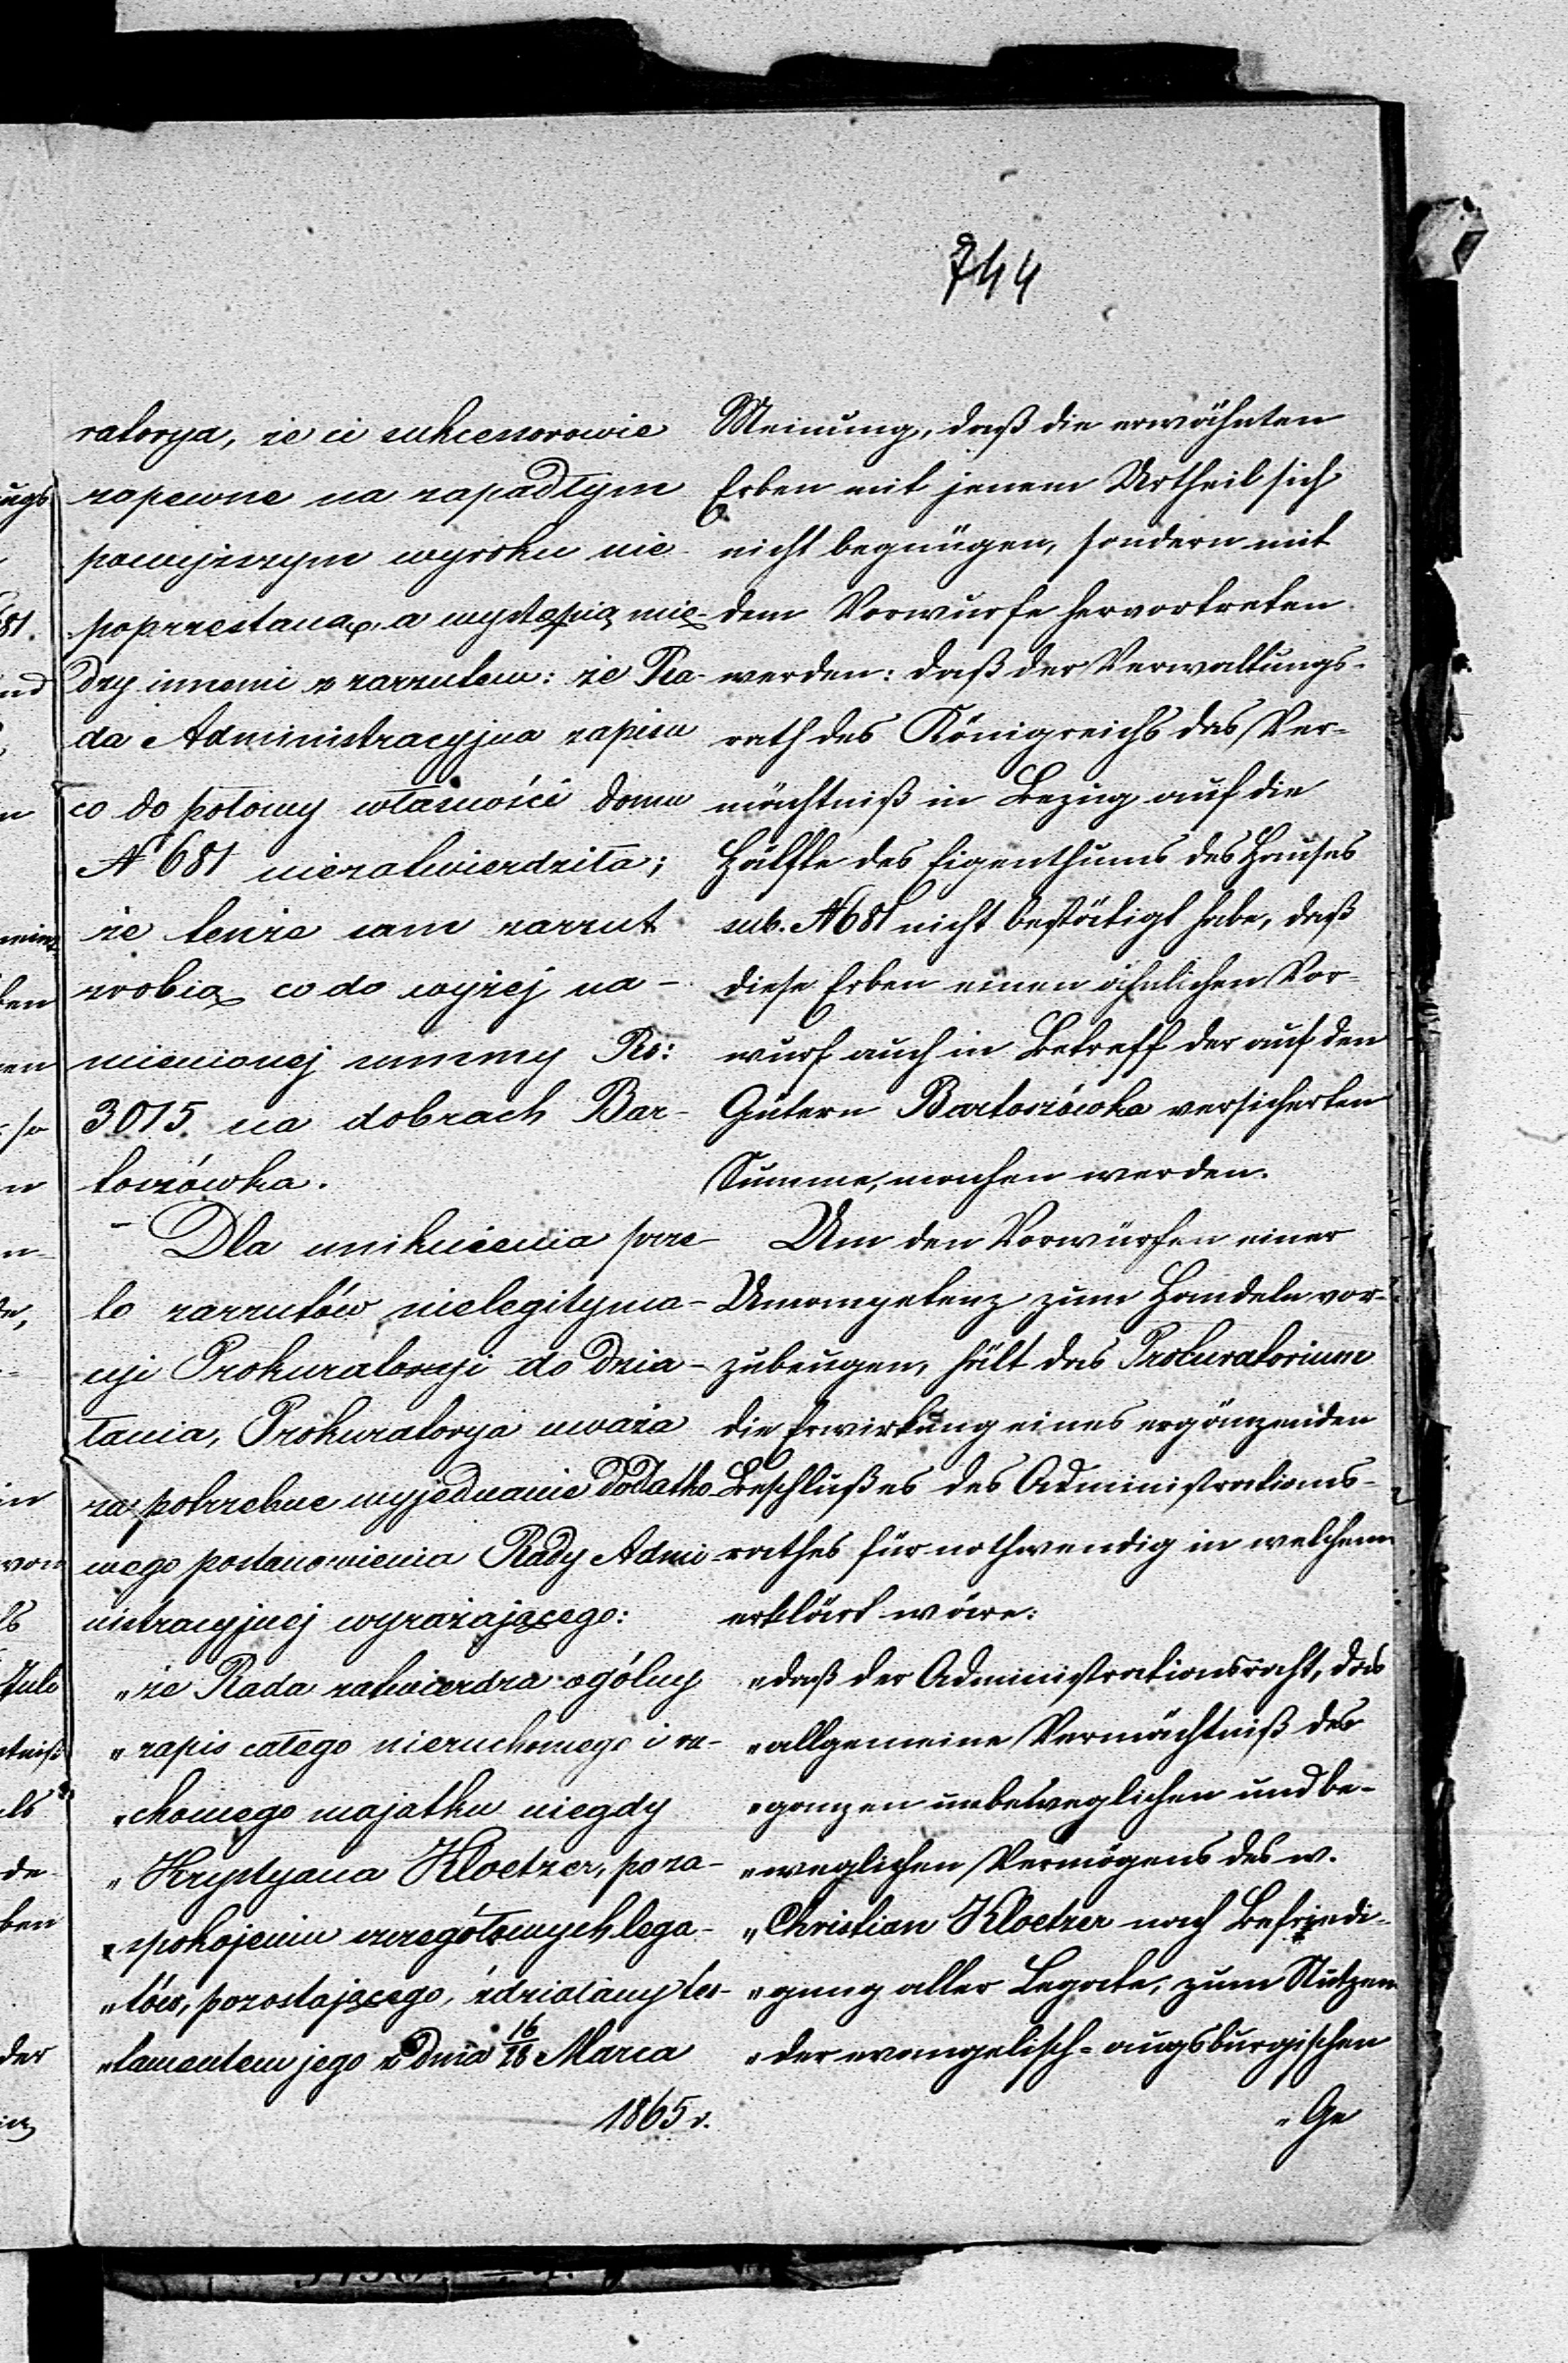 744
ratorya, że ci sukcessorowie
zapewne na zapadłym
powyższym wyroku nie
poprzestaną, a wystąpią mię-
dzy innemi z zarzutem: że Ra-
da Administracyjna zapisu
co do połowy własności domu
N 681 niezatwierdziła;
że tenże sam zarzut
zrobią co do wyżej na-
mienionej summy Rs:
3015 na dobrach Bar-
toszówka.
Dla uniknienia prze-
to zarzutów nielegityma-
cyi Prokuratoryi do dzia-
łania, Prokuratorya uważa
za potrzebne wyjednanie dodatko
wego postanowienia Rady Admi
nistracyjnej wyrażającego:
„że Rada zatwierdza ogólny
„zapis całego nieruchomego i ru-
„chomego majątku niegdy
„Krystyana Kloetzer, po za-
„spokojeniu szczegółowych lega-
„tów, pozostającego, zdziałany tes-
„tamentem jego z dnia 16/28 Marca
1865 r.
Meinung, daß die erwähnten
Erben mit jenem Urtheil sich
nicht begnügen, sondern mit
dem Vorwurfe hervortreten
werden: daß der Verwaltungs-
rath des Königreichs das Ver-
mächtniß in Bezug auf die
Hälfte des Eigenthums des Hauses
sub. N 681 nicht bestätigt habe, daß
diese Erben einen ähnlichen Vor-
wurf auch in Betreff der auf den
Gütern Bartoszówka versicherten
Summe, machen werden.
Um den Vorwürfen einer
Uncompetenz zum Handeln vor-
zubeugen, hält das Prokuratorium
die Erwirkung eines ergänzenden
Beschlußes des Administrations-
rathes für nothwendig in welchem
erklärt wäre:
„daß der Administrationsrath, das
„allgemeine Vermächtniß des
„ganzen unbeweglichen und be-
„weglichen Vermögens des w.
„Christian Kloetzer nach Befriedi-
„gung aller Legate, zum Nutzen
„der evangelisch-augsburgischen
„Ge